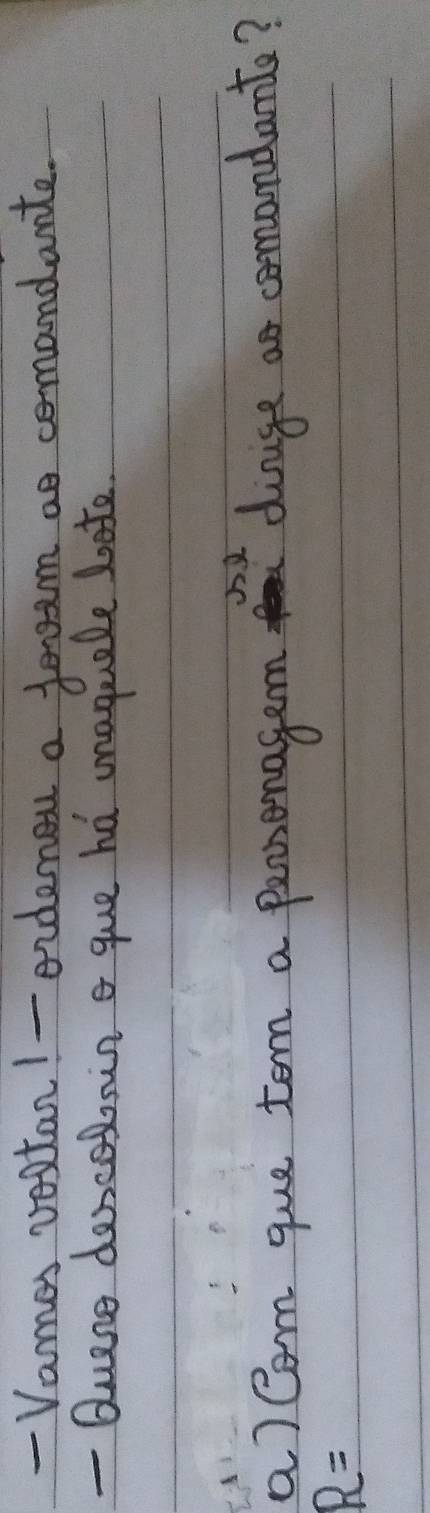 - Vamos voltar! - ordenou a jovem ao comandante.
- Quero descobrir o que há naquele bote.
a) Com que tom a personagem se dirige ao comandante?
R=